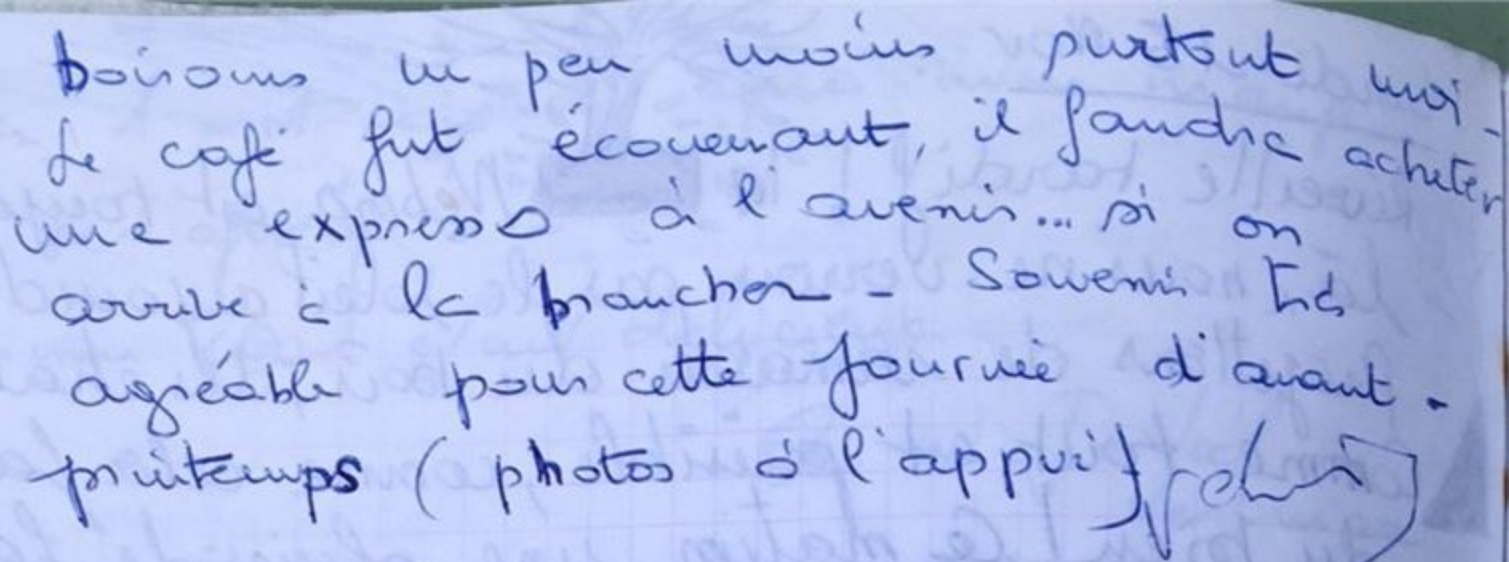 boirons un peu moins surtout moi -
Le café fut écoeurant, il faudra acheter
une expresso à l'avenir... si on
arrive à la brancher - Souvenir très
agréable pour cette journée d'avant -
printemps (photos à l'appui)